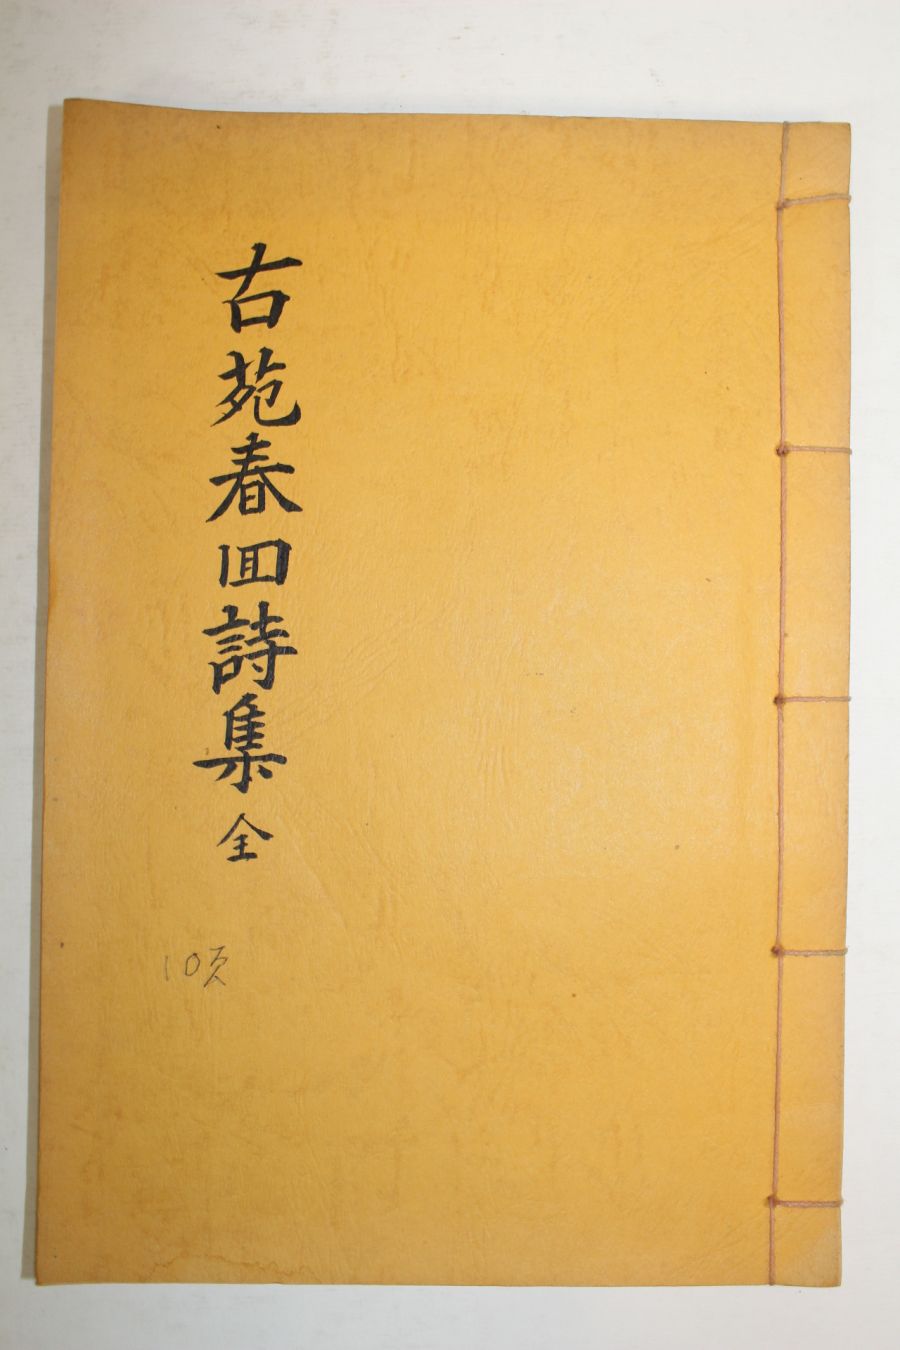 古苑春回詩集 全
10页